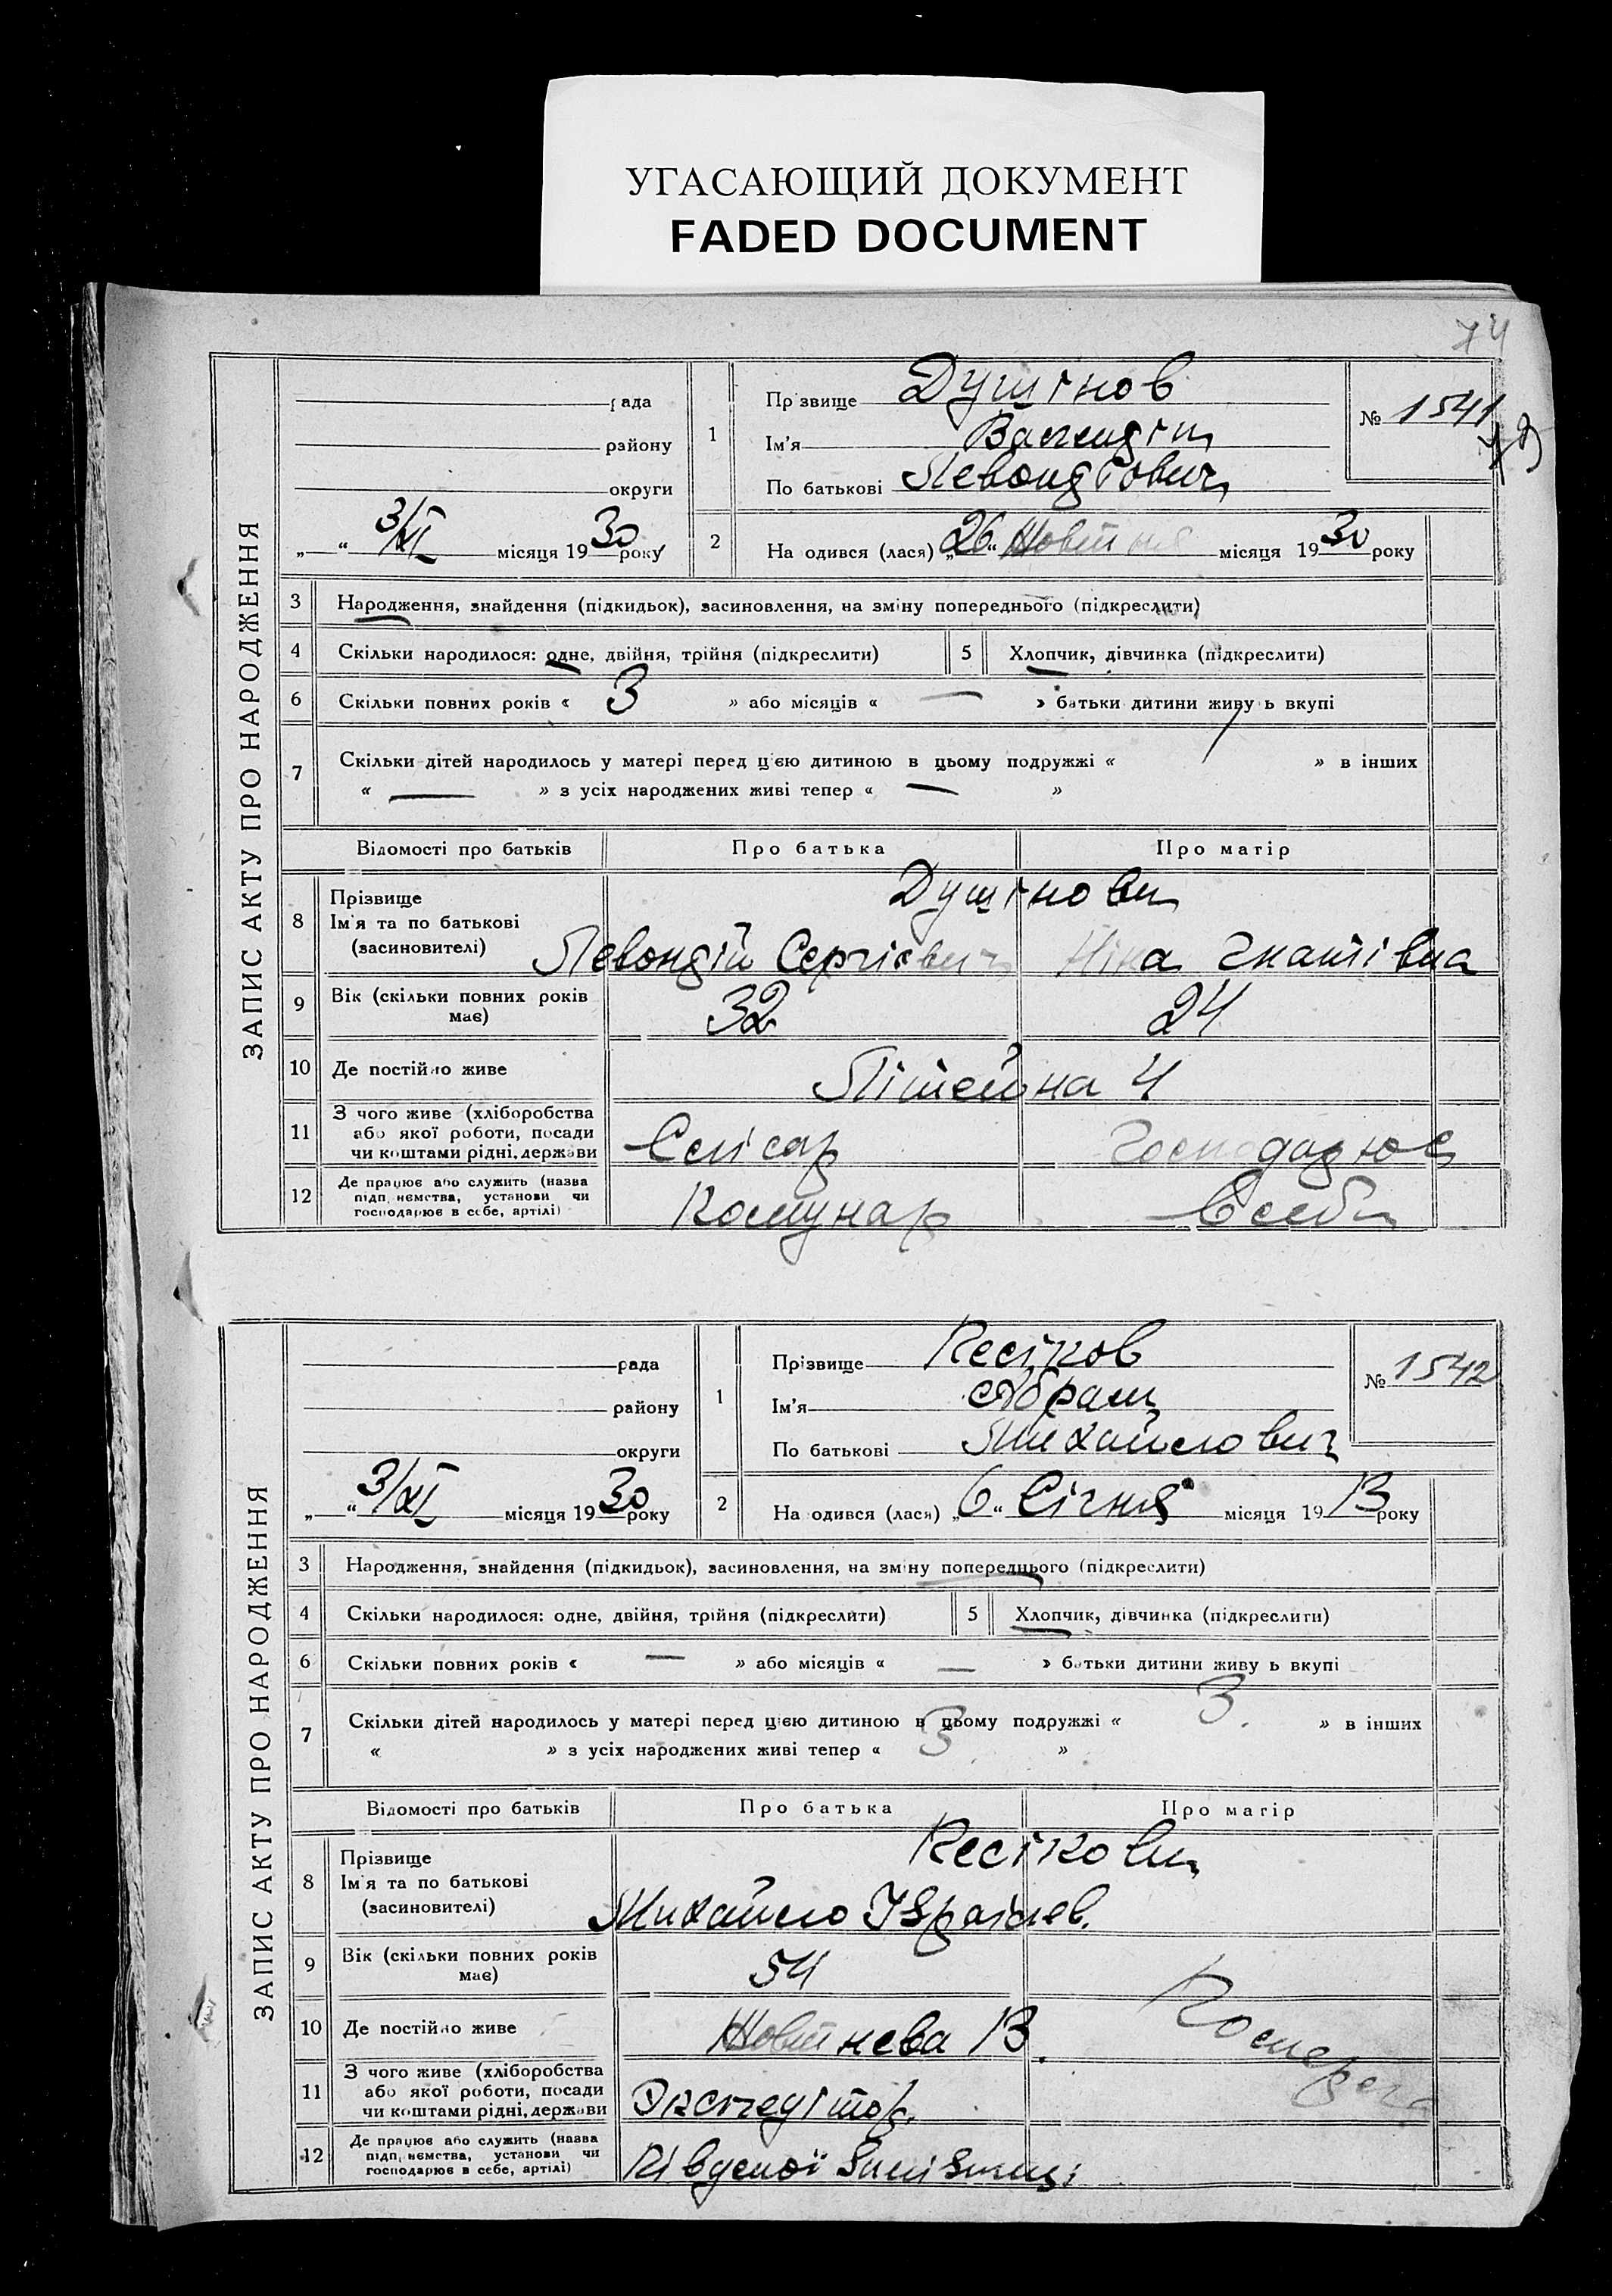 УГАСАЮЩИЙ ДОКУМЕНТ
FADED DOCUMENT
74
ЗАПИС АКТУ ПРО НАРОДЖЕННЯ
рада
району
округи
„ “ 3/XI місяця 1930 року
1
Прізвище Душінов
Ім'я
По батькові Левондієвич
№ 1541
2 На одився (лася) „26“ Жовтня місяця 1930 року
3 Народження, знайдення (підкидьок), засиновлення, на зміну попереднього (підкреслити)
4 Скільки народилося: одне, двійня, трійня (підкреслити) 5 Хлопчик, дівчинка (підкреслити)
6 Скільки повних років « 3 » або місяців « — » батьки дитини живу ь вкупі
7 Скільки дітей народилось у матері перед цією дитиною в цьому подружжі « / » в інших
« — » з усіх народжених живі тепер « — »
Відомості про батьків Про батька Про матір
8 Прізвище Душінови
Ім'я та по батькові
(засиновителі) Левондій Сергієвич Ніна Гнатівна
9 Вік (скільки повних років має) 32 24
10 Де постійно живе Літейна 4
11 З чого живе (хліборобства
або якої роботи, посади
чи коштами рідні, держави Слісар Господарює
12 Де працює або служить (назва
підп иємства, установи чи
господарює в себе, артілі) Комунар в себе
ЗАПИС АКТУ ПРО НАРОДЖЕННЯ
рада
району
округи
„ “ 3/XI місяця 1930 року
1
Прізвище Кесіков
Ім'я Абрам
По батькові Михайлович
№ 1542
2 На одився (лася) „6“ Січня місяця 1913 року
3 Народження, знайдення (підкидьок), засиновлення, на зміну попереднього (підкреслити)
4 Скільки народилося: одне, двійня, трійня (підкреслити) 5 Хлопчик, дівчинка (підкреслити)
6 Скільки повних років « — » або місяців « — » батьки дитини живу ь вкупі
7 Скільки дітей народилось у матері перед цією дитиною в цьому подружжі « 3. » в інших
« » з усіх народжених живі тепер « 3 »
Відомості про батьків Про батька Про матір
8 Прізвище Кесікови
Ім'я та по батькові
(засиновителі) Михайло Ізраілев.
9 Вік (скільки повних років має) 54
10 Де постійно живе Жовтнева 13.
Померла
11 З чого живе (хліборобства
або якої роботи, посади
чи коштами рідні, держави Экспедітор
12 Де працює або служить (назва
підп иємства, установи чи
господарює в себе, артілі) Південої Залізниці